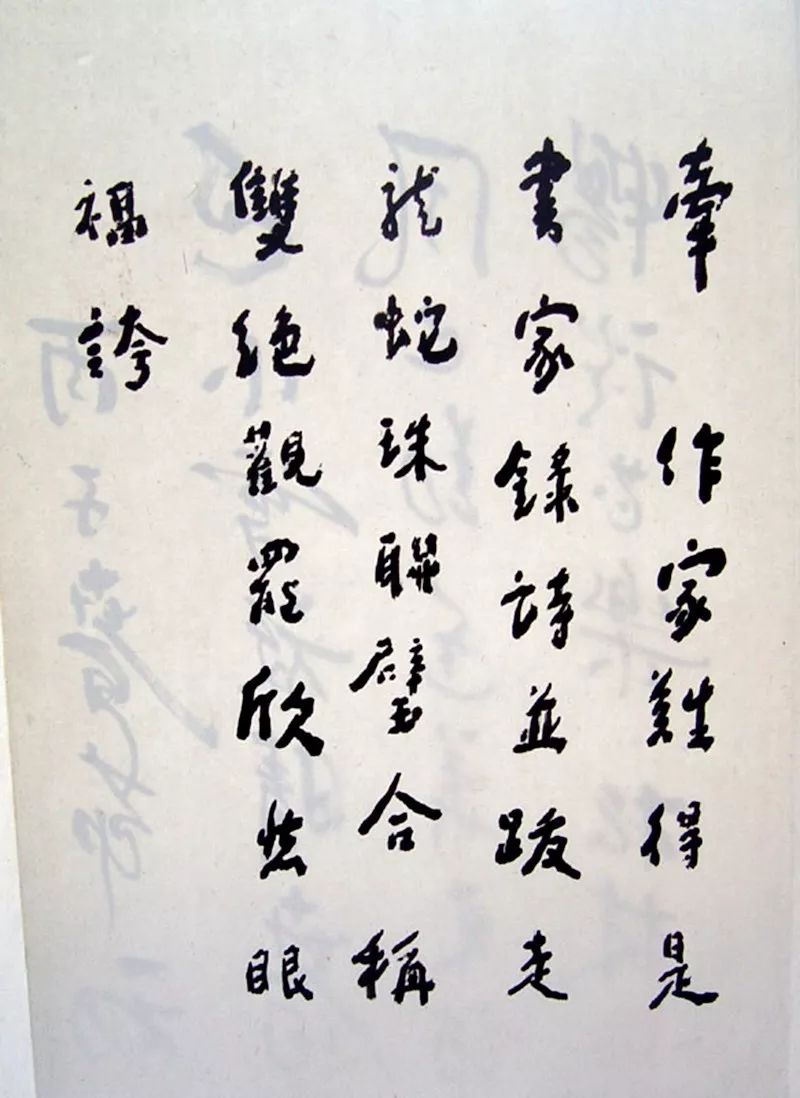 牽 作家難得是
書家錄詩並跋走
龍蛇珠聯璧合稱
雙絕觀罷欣然眼
福誇